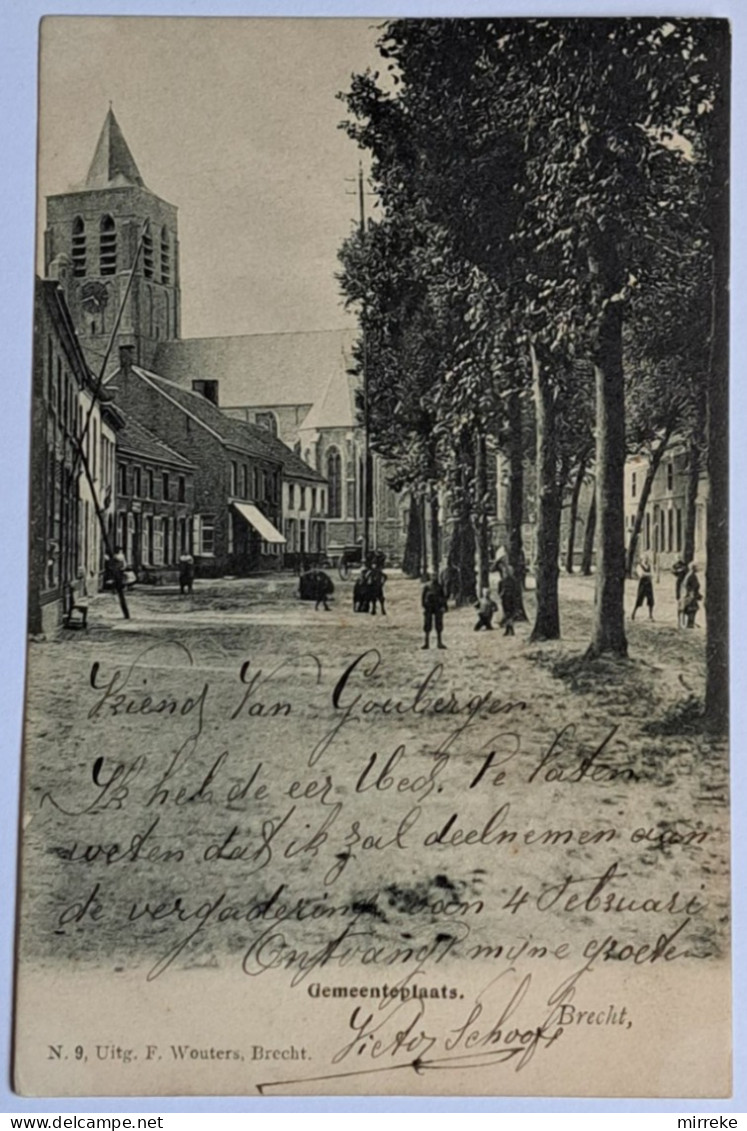 Vriend Van Goubergen
Ik heb de eer Ued. Te laten
weten dat ik zal deelnemen aan
de vergadering van 4 Februari
Ontvangt mijne groeten
Gemeenteplaats.
Brecht,
Victor Schoofs
N. 9, Uitg. F. Wouters, Brecht.
mirreke
www.delcampe.net